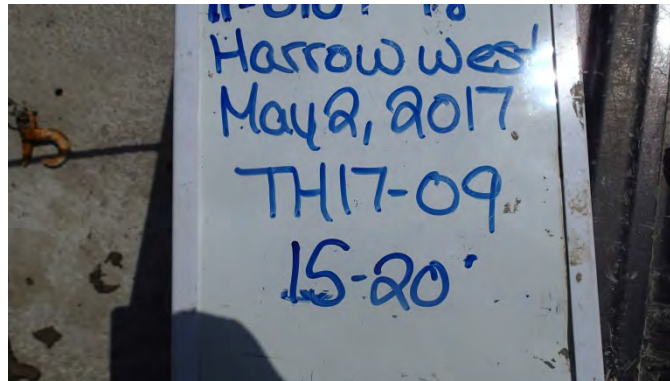 Harrow West
May 2, 2017
TH17-09
15-20'